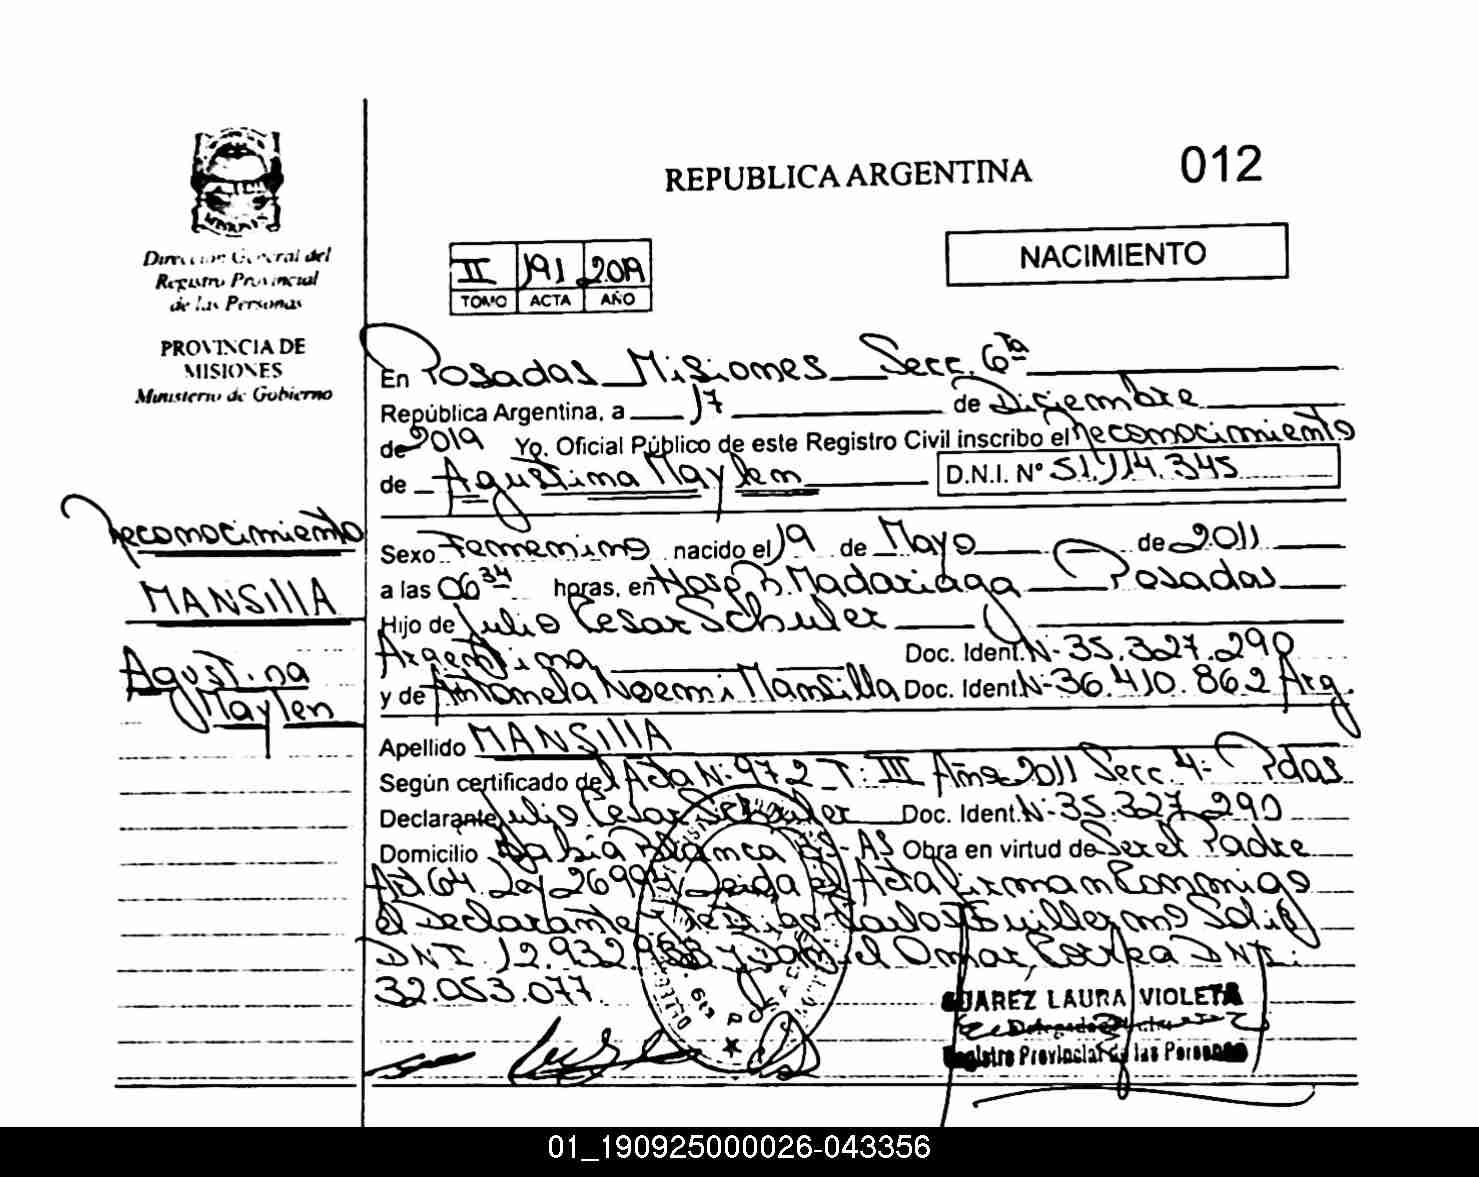 REPUBLICA ARGENTINA
012
Dirección General del
Registro Provincial
de las Personas
PROVINCIA DE
MISIONES
Ministerio de Gobierno
II 191 2019
TOMO ACTA AÑO
NACIMIENTO
En Posadas Misiones Secc. 6ta
República Argentina, a 17 de Diciembre
de 2019 Yo, Oficial Público de este Registro Civil inscribo el reconocimiento
de Agustina Maylen D.N.I. Nº 51.114.345
reconocimiento
MANSIllA
Agustina
Maylen
Sexo Femenino nacido el 19 de Mayo de 2011
a las 06 34 horas, en Hosp R. Madariaga Posadas
Hijo de Julio Cesar Schuler
Argentina Doc. Ident. N- 35.327.290
y de Antonela Noemi Mansilla Doc. Ident. N- 36.410.862 Arg.
Apellido MANSIllA
Según certificado del Acta N- 972 T: III Año 2011 Secc 4- Pdas
Declarante Julio Cesar Schuler Doc. Ident. N- 35.327.290
Domicilio Bahia Blanca BS-AS Obra en virtud de Ser el Padre
Art 64 Ley 26994 Leida el Acta firman Conmigo
el Declarante y Testigos Carlos Guillermo
DNI 12.932.988 y Daniel Omar Correa DNI.
32.053.077
SUAREZ LAURA VIOLETA
Delegada Titular
Registro Provincial de las Personas
01_190925000026-043356